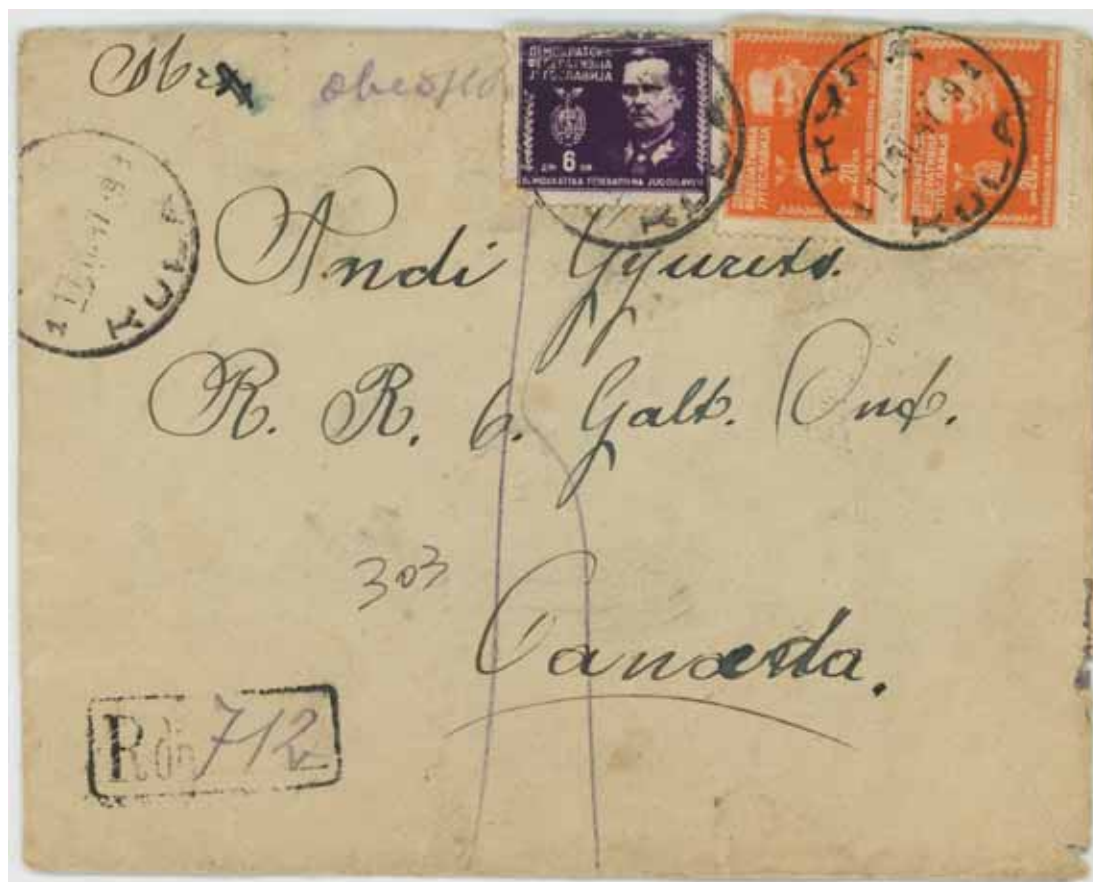 ДЕМОКРАТСКА
ФЕДЕРАТИВНА
ЈУГОСЛАВИЈА
6
DEMOKRATSKA FEDERATIVNA JUGOSLAVIJA
20
20
КУЛА
KULA
KULA
KULA
Andi Gyurits.
R. R. 6. Galt. Ont.
303
Canada.
R 712